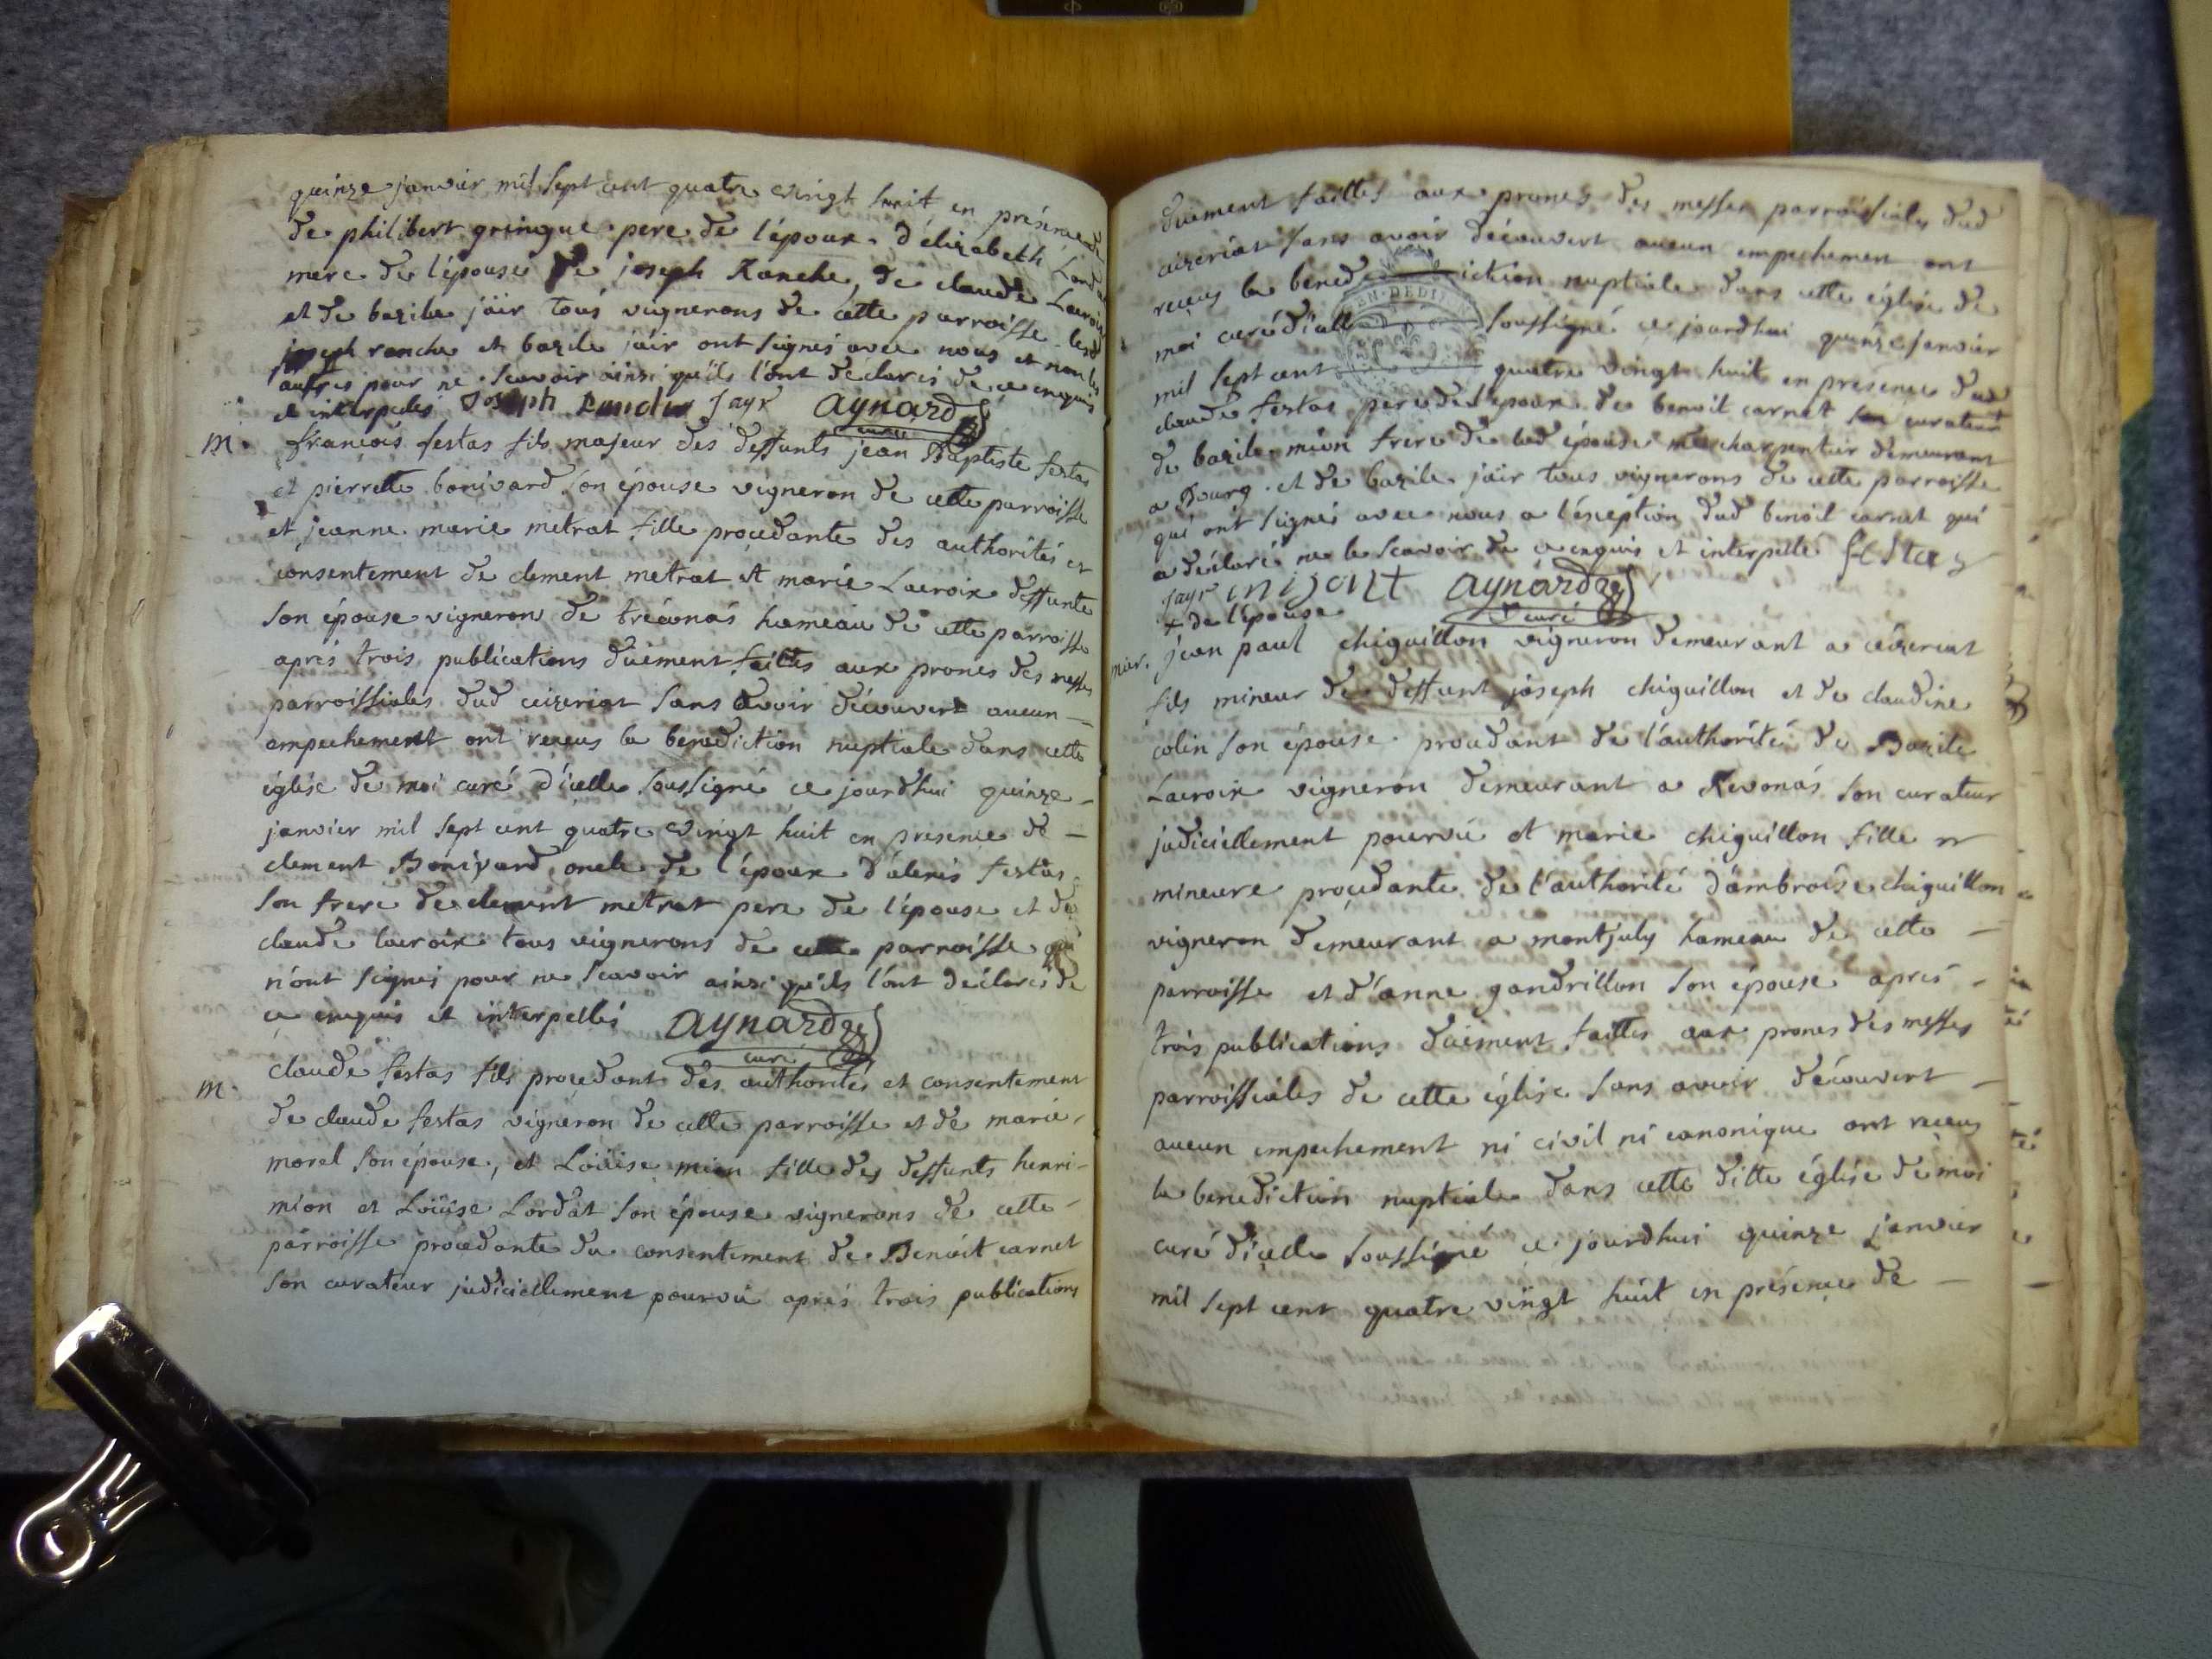 quinze janvier mil sept cent quatre vingt huit en présence
de philibert gringue pere de l'époux d'élizabeth Lordat
mere de l'épouse de joseph Ranche, de claude Lacroix
et de bazile jaïr tous vignerons de cette parroisse lesd
joseph ranche et bazile jaïr ont signés avec nous et non les
autres pour ne scavoir ainsi qu'ils l'ont declarés de ce enquis
et interpellés Joseph Jayr aynard
curé
m. françois festas fils majeur des deffunts jean Baptiste festas
et pierrette bonivard son épouse vigneron de cette parroisse
et jeanne marie metrat fille procedante des authorités et
consentement de clement metrat et marie Lacroix deffunte
son épouse vigneron de tréconas hameau de cette parroisse
aprés trois publications düement faittes aux prones des messes
parroissiales dud ceizeriat sans avoir découvert aucun
empechement ont reçeus la benediction nuptiale dans cette
église de moi curé d'icelle soussigné ce jourdhui quinze
janvier mil sept cent quatre vingt huit en présence de
clement Bonivard oncle de l'époux d'alexis festas
son frere de clement metrat pere de l'épouse et de
claude lacroix tous vignerons de cette parroisse qui
n'ont signés pour ne scavoir ainsi qu'ils l'ont déclarés de
ce enquis et interpellés aynard
curé
m. claude festas fils procedant des authorités et consentement
de claude festas vigneron de cette parroisse et de marie
morel son épouse, et Loüise mion fille des deffunts henri
mion et Loüise Lordat son épouse vignerons de cette
parroisse procedante du consentement de Benoit carnet
son curateur judiciellement pourvu aprés trois publications
düement faittes aux prones des messes parroissiales dud
ceizeriat sans avoir découvert aucun empechement ont
reçeus la bened iction nuptiale dans cette église de
moi curé d'icelle soussigné ce jourdhui quinze janvier
mil sept cent quatre vingt huit en présence dud
claude festas pere de l'epoux de benoit carnet curateur
de bazile mion frere de lad épouse charpentier demeurant
a Bourg et de bazile jaïr tous vignerons de cette parroisse
qui ont signés avec nous a l'éxeption dud benoit carnet qui
a déclaré ne le scavoir de ce enquis et interpellé festas
jayr aynard
+ de l'épouse curé
mar. jean paul chiguillon vigneron demeurant a ceizeriat
fils mineur de deffunt joseph chiguillon et de claudine
colin son épouse procedant de l'authorité de Bazile
Lacroix vigneron demeurant a Revonas son curateur
judiciellement pourvu et marie chiguillon fille
mineure proçedante de l'authorité d'ambroise chiguillon
vigneron demeurant a montjuly hameau de cette
parroisse et d'anne gandrillon son épouse aprés
trois publications düement faittes aux prones des messes
parroissiales de cette église sans avoir découvert
aucun empechement ni civil ni canonique ont reçeus
la benediction nuptiale dans cette ditte église de moi
curé d'icelle soussigné ce jourdhui quinze janvier
mil sept cent quatre vingt huit en présence de